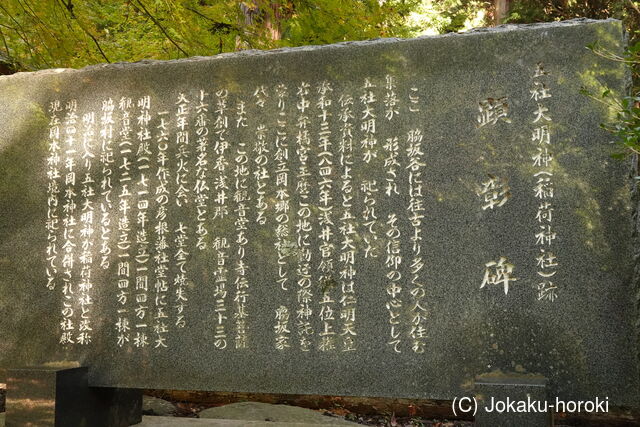 五社大明神（稲荷神社）跡
顕彰碑
ここ 脇坂谷には往古より多くの人が住む
集落が 形成され その信仰の中心として
五社大明神が 祀られていた
伝承資料によると五社大明神は仁明天皇
承和十三年（八四六年）浅井官領従五位上藤
右中弁橘宮主麿この地に勧請の際神託を
蒙りここに創立田木郷の総社として 脇坂家
代々 崇敬の社とある
また この地に観音堂あり寺伝行基菩薩
の草創で伊香浅井郡 観音霊場三十三の
十六番の著名な仏堂とある
大正年間火災に会い 七堂全て焼失する
一七六〇年作成の彦根藩社堂帖に五社大
明神社殿（一七一四年造立）一間四方一棟
観音堂（一七二五年造立）一間四方一棟が
脇坂村に祀られているとある
明治に入り五社大明神が稲荷神社と改称
明治四十一年田木神社に合併されこの社殿
現在田木神社境内に祀られている
(C) Jokaku-horoki